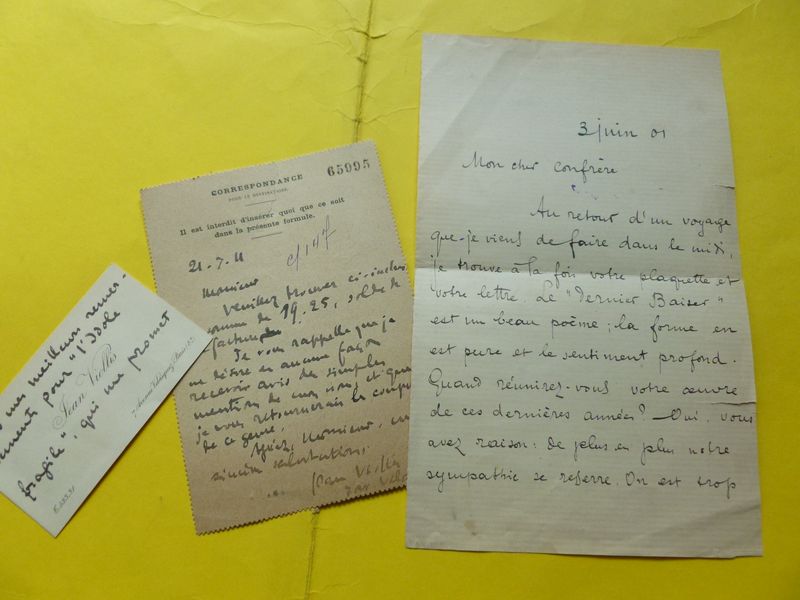 s mes meilleurs remer-
ciements pour "l'Isole
Jean Viollis
fragile", qui me promet
7 Avenue Vélasquez, Paris (8e)
CORRESPONDANCE
POUR LE DESTINATAIRE.
65995
Il est interdit d'insérer quoi que ce soit
dans la présente formule.
21-7-11
Monsieur
Veuillez trouver ci-inclus
somme de 19.25, solde de
facture
Je vous rappelle que je
ne désire en aucune façon
recevoir avis des simples
mentions de mon nom, et que
je vous retournerais les coupures
de ce genre.
Agréez, Monsieur, mes
sincères salutations.
Jean Viollis
3 juin 01
Mon cher confrère
Au retour d'un voyage
que je viens de faire dans le midi,
je trouve à la fois votre plaquette et
votre lettre. Le "Dernier Baiser"
est un beau poème ; la forme en
est pure et le sentiment profond.
Quand réunirez-vous votre œuvre
de ces dernières années? Oui, vous
avez raison : de plus en plus notre
sympathie se resserre. On est trop